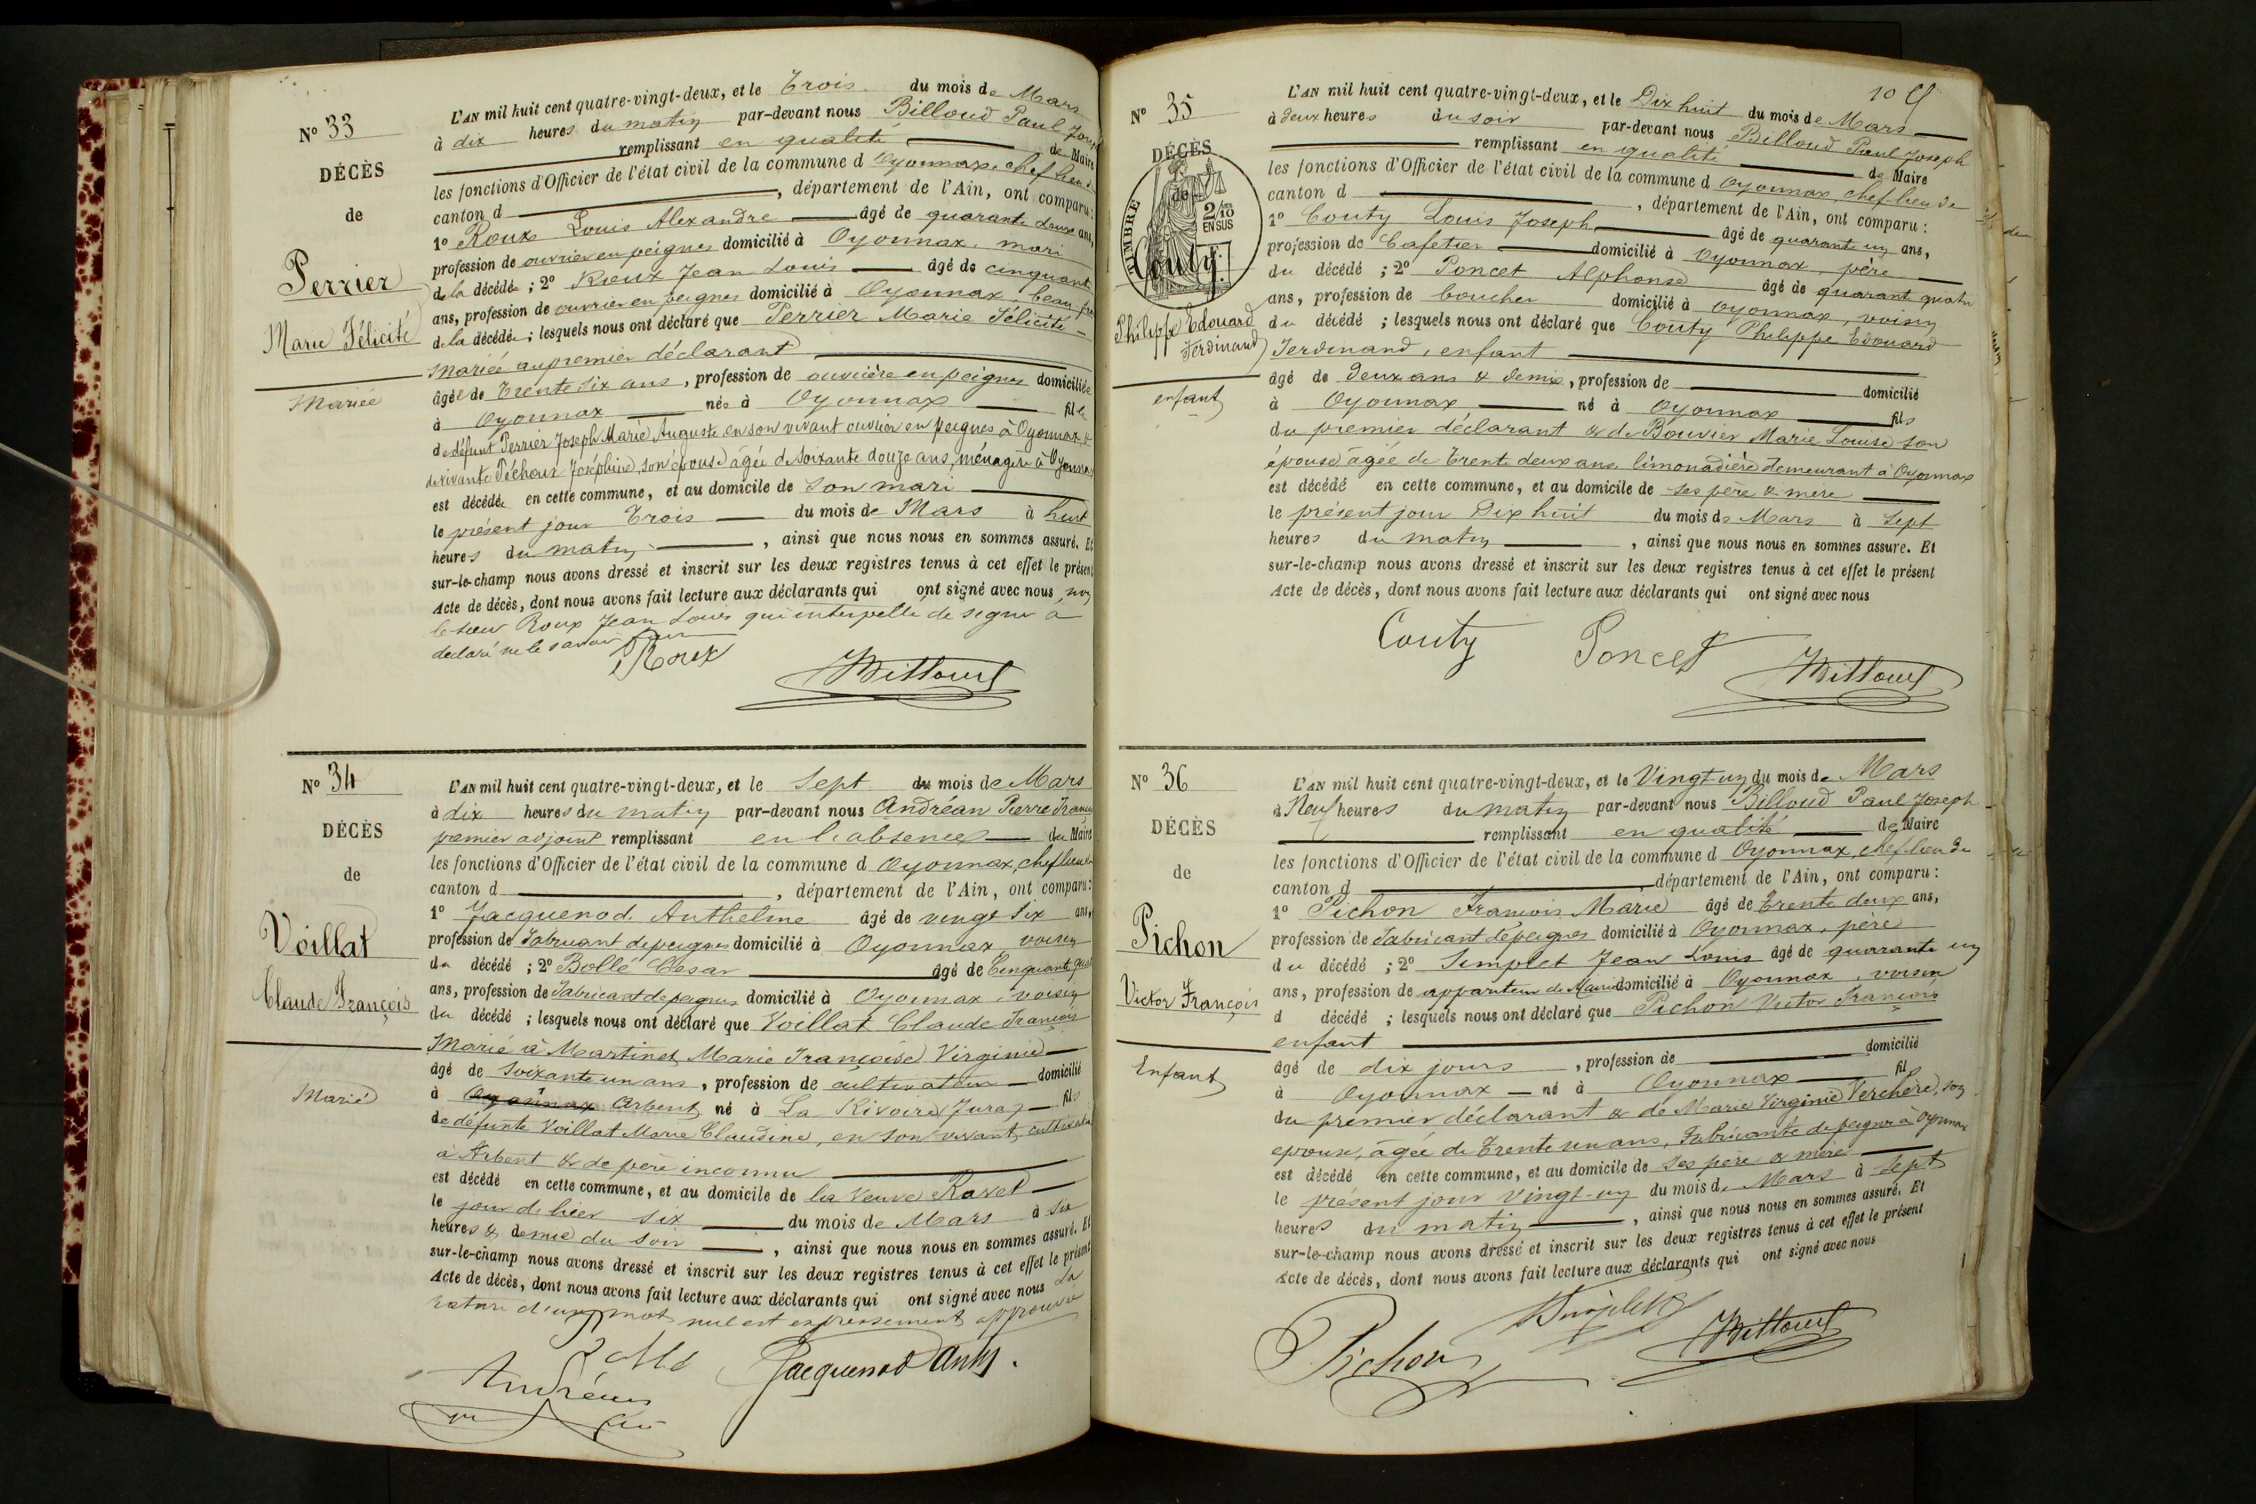 N° 33
DÉCÈS
de
Perrier
Marie Félicité
Mariée
L'AN mil huit cent quatre-vingt-deux, et le Trois du mois de Mars
à dix heures du matin par-devant nous Billoud Paul Joseph
remplissant en qualité de Maire
les fonctions d'Officier de l'état civil de la commune d Oyonnax chef lieu de
canton d , département de l'Ain, ont comparu:
1° Roux Louis Alexandre âgé de quarante deux ans,
profession de ouvrier en peignes domicilié à Oyonnax, mari
de la décédée ; 2° Roux Jean Louis âgé de cinquante
ans, profession de ouvrier en peignes domicilié à Oyonnax, beau frère
de la décédée ; lesquels nous ont déclaré que Perrier Marie Félicité
Mariée au premier déclarant
âgée de Trente six ans, profession de ouvrière en peignes domiciliée
à Oyonnax née à Oyonnax fille
de défunt Perrier Joseph Marie Auguste, en son vivant ouvrier en peignes à Oyonnax &
de vivante Péchoux Joséphine, son épouse âgée de soixante douze ans, ménagère à Oyonnax
est décédée en cette commune, et au domicile de son mari
le présent jour Trois du mois de Mars à huit
heures du matin , ainsi que nous nous en sommes assuré. Et
sur-le-champ nous avons dressé et inscrit sur les deux registres tenus à cet effet le présent
Acte de décès, dont nous avons fait lecture aux déclarants qui ont signé avec nous, non
le sieur Roux Jean Louis qui interpellé de signer a
déclaré ne le savoir
Roux
Billoud
N° 34
DÉCÈS
de
Voillat
Claude François
Marié
L'AN mil huit cent quatre-vingt-deux, et le Sept du mois de Mars
à dix heures du matin par-devant nous Andréan Pierre François
premier adjoint remplissant en l'absence du Maire
les fonctions d'Officier de l'état civil de la commune d Oyonnax, chef lieu de
canton d , département de l'Ain, ont comparu:
1° Jacquenod Anthelme âgé de vingt six ans,
profession de Fabricant de peignes domicilié à Oyonnax, voisin
du décédé ; 2° Bollé César âgé de Cinquante quatre
ans, profession de Fabricant de peignes domicilié à Oyonnax, voisin
du décédé ; lesquels nous ont déclaré que Voillat Claude François
Marié à Martinet Marie Françoise Virginie
âgé de Soixante un ans, profession de cultivateur domicilié
à Oyonnax Arbent né à La Rivoire, Jura, fils
de défunte Voillat Marie Claudine, en son vivant, cultivatrice
à Arbent & de père inconnu
est décédé en cette commune, et au domicile de la Veuve Ravet
le jour de hier six du mois de Mars à six
heures & demie du soir , ainsi que nous nous en sommes assuré. Et
sur-le-champ nous avons dressé et inscrit sur les deux registres tenus à cet effet le présent
Acte de décès, dont nous avons fait lecture aux déclarants qui ont signé avec nous La
rature d'un mot nul est expressement approuvée
Bollé Jacquenod Anth.
Andréan
N° 35
DÉCÈS
de
TIMBRE
2/10
EN SUS
Couty
Philippe Edouard
Ferdinand
enfant
10
L'AN mil huit cent quatre-vingt-deux, et le Dix huit du mois de Mars
à deux heures du soir par-devant nous Billoud Paul Joseph
remplissant en qualité de Maire
les fonctions d'Officier de l'état civil de la commune d Oyonnax, chef lieu de
canton d , département de l'Ain, ont comparu :
1° Couty Louis Joseph âgé de quarante un ans,
profession de Cafetier domicilié à Oyonnax, père
du décédé ; 2° Poncet Alphonse âgé de quarante quatre
ans, profession de boucher domicilié à Oyonnax, voisin
du décédé ; lesquels nous ont déclaré que Couty Philippe Edouard
Ferdinand, enfant
âgé de deux ans & demi, profession de domicilié
à Oyonnax né à Oyonnax fils
du premier déclarant & de Bouvier Marie Louise son
épouse âgée de Trente deux ans, limonadière demeurant à Oyonnax
est décédé en cette commune, et au domicile de ses père & mère
le présent jour Dix huit du mois de Mars à Sept
heures du matin , ainsi que nous nous en sommes assuré. Et
sur-le-champ nous avons dressé et inscrit sur les deux registres tenus à cet effet le présent
Acte de décès, dont nous avons fait lecture aux déclarants qui ont signé avec nous
Couty Poncet Billoud
N° 36
DÉCÈS
de
Pichon
Victor François
Enfant
L'AN mil huit cent quatre-vingt-deux, et le Vingt-un du mois de Mars
à Neuf heures du matin par-devant nous Billoud Paul Joseph
remplissant en qualité de Maire
les fonctions d'Officier de l'état civil de la commune d Oyonnax, chef-lieu de
canton d , département de l'Ain, ont comparu :
1° Pichon François Marie âgé de Trente deux ans,
profession de Fabricant de peignes domicilié à Oyonnax, père
du décédé ; 2° Simplet Jean Louis âgé de quarante un
ans, profession de appariteur de Mairie domicilié à Oyonnax, voisin
d décédé ; lesquels nous ont déclaré que Pichon Victor François
enfant
âgé de dix jours , profession de domicilié
à Oyonnax né à Oyonnax fil
du premier déclarant & de Marie Virginie Verchère, son
épouse, âgée de Trente un ans, Fabricante de peignes à Oyonnax
est décédé en cette commune, et au domicile de ses père & mère
le présent jour Vingt-un du mois de Mars à Sept
heures du matin , ainsi que nous nous en sommes assuré. Et
sur-le-champ nous avons dressé et inscrit sur les deux registres tenus à cet effet le présent
Acte de décès, dont nous avons fait lecture aux déclarants qui ont signé avec nous
Pichon Simplet Billoud